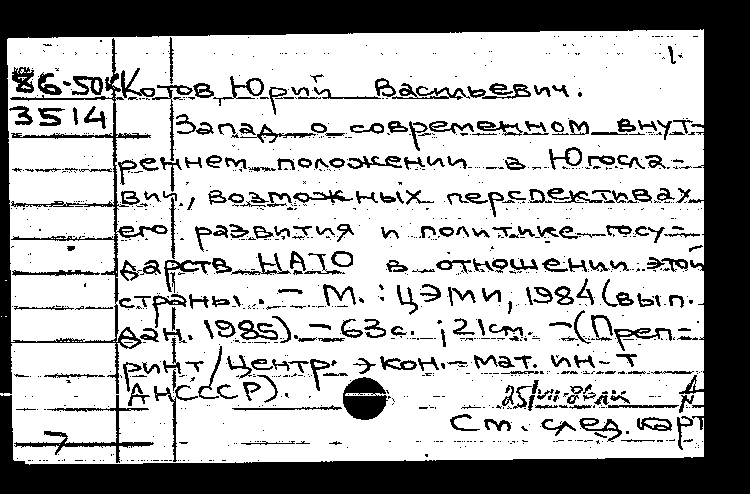 1.
86-50к Котов, Юрий Васильевич.
3514 Запад о современном внут-
реннем положении в Югосла-
вии, возможных перспективах
его развития и политике госу-
дарств НАТО в отношении этой
страны. – М. : ЦЭМИ, 1984 (вып.
дан. 1985). – 63 с. ; 21 см. – (Преп-
ринт / Центр. экон.-мат. ин-т
АНСССР).
25/VII-86
См. след. карт